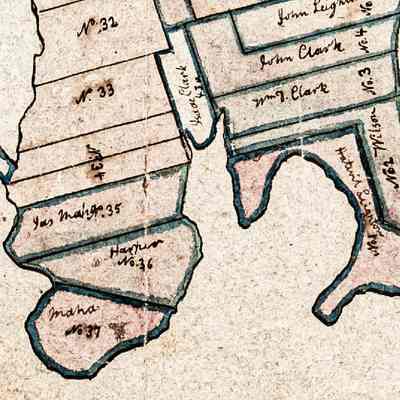 No. 32
John Leigh
No. 4
John Clark
No. 33
Isaac Clark
No. 3
Wm. J. Clark
No. 34
Wilson
No. 2
Jas Maha No. 35
No. 1
Harper
No. 36
Maha
No. 37